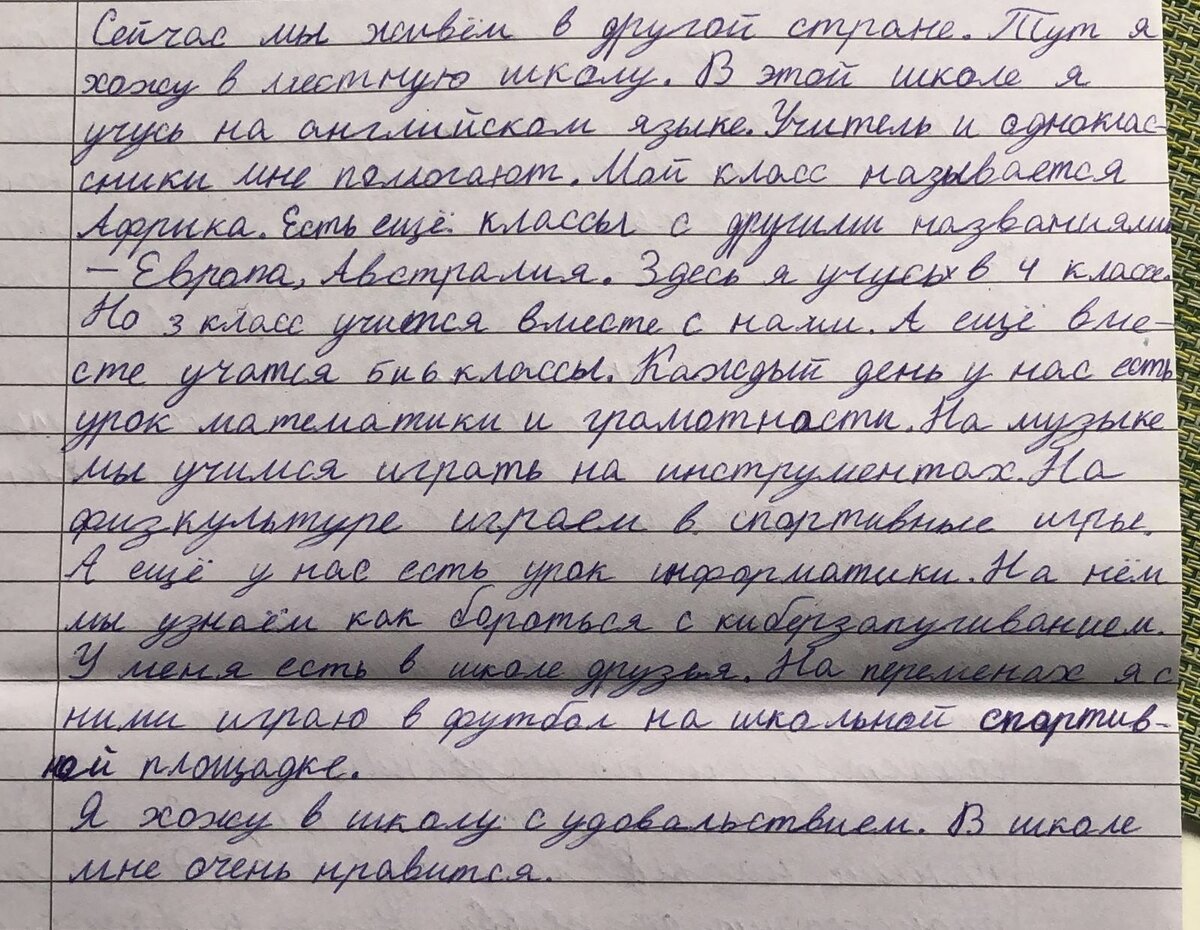 Сейчас мы живём в другой стране. Тут я
хожу в местную школу. В этой школе я
учусь на английском языке. Учитель и однокла­с-
сники мне помогают. Мой класс называется
Африка. Есть ещё классы с другими названиями
– Европа, Австралия. Здесь я учусь в 4 классе.
Но 3 класс учится вместе с нами. А ещё вме-
сте учатся 5 и 6 классы. Каждый день у нас есть
урок математики и грамотности. На музыке
мы учимся играть на инструментах. На
физкультуре играем в спортивные игры.
А ещё у нас есть урок информатики. На нём
мы узнаём как бороться с киберзапугиванием.
У меня есть в школе друзья. На переменах я с
ними играю в футбол на школьной спортив-
ной площадке.
Я хожу в школу с удовальствием. В школе
мне очень нравится.